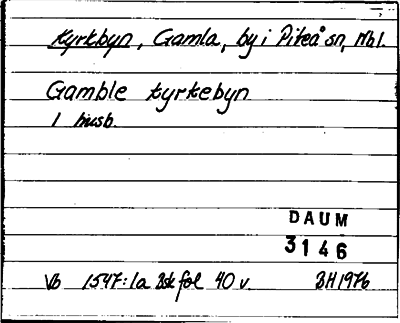 Kyrkbyn, Gamla, by i Piteå sn, Nbl.
Gamble kyrkebyn
1 husb.
DAUM
3146
Vb 1547:1a Bsk fol 40 v. BH 1976